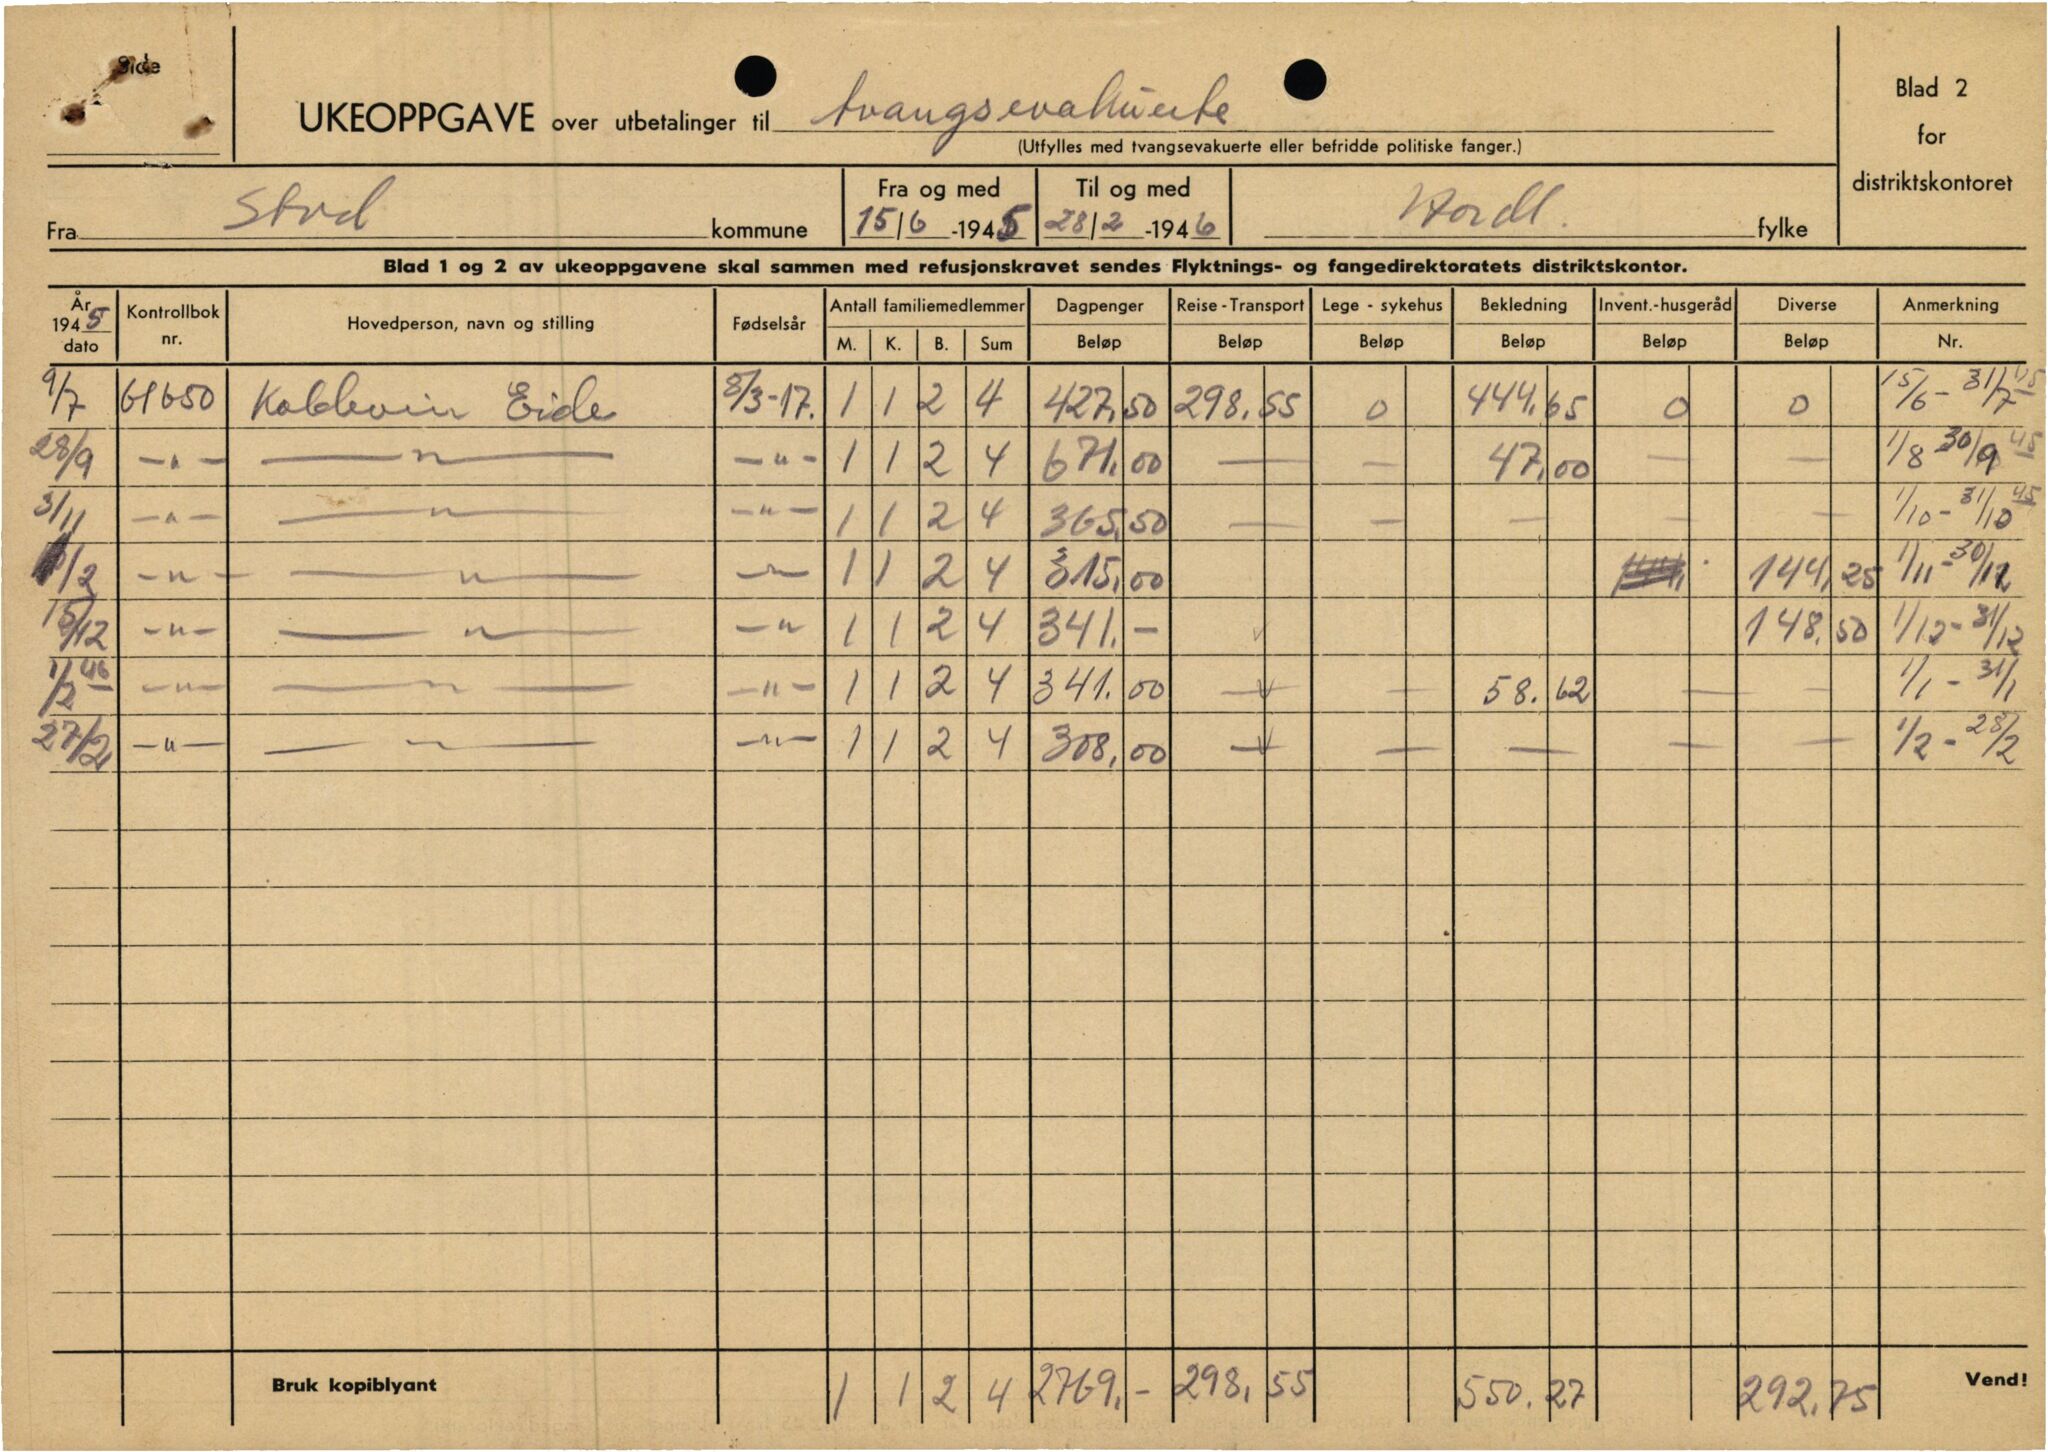 Side
UKEOPPGAVE over utbetalinger til tvangsevakuerte
(Utfylles med tvangsevakuerte eller befridde politiske fanger.)
Blad 2
for
distriktskontoret
Fra Stord kommune
Fra og med 15/6 -1945
Til og med 28/2 -1946
Hordl. fylke
Blad 1 og 2 av ukeoppgavene skal sammen med refusjonskravet sendes Flyktnings- og fangedirektoratets distriktskontor.
År 1945 dato | Kontrollbok nr. | Hovedperson, navn og stilling | Fødselsår | Antall familiemedlemmer M. K. B. Sum | Dagpenger Beløp | Reise - Transport Beløp | Lege - sykehus Beløp | Bekledning Beløp | Invent.-husgeråd Beløp | Diverse Beløp | Anmerkning Nr.
9/7 61650 Koldevin Eide 8/3-17. 1 1 2 4 427,50 298,55 0 444,65 0 0 15/6 - 31/7 45
28/9 -"- -"- -"- 1 1 2 4 671,00 — — 47,00 — — 1/8 30/9 45
3/11 -"- -"- -"- 1 1 2 4 365,50 — — — — — 1/10 - 31/10 45
/12 -"- -"- -"- 1 1 2 4 315,00 144,25 1/11 - 30/11
15/12 -"- -"- -"- 1 1 2 4 341.- 148,50 1/12 - 31/12
1/2 46 -"- -"- -"- 1 1 2 4 341.00 — — 58.62 — — 1/1 - 31/1
27/2 -"- -"- -"- 1 1 2 4 308,00 — — — — — 1/2 - 28/2
Bruk kopiblyant 1 1 2 4 2769,- 298,55 550.27 292,75 Vend!